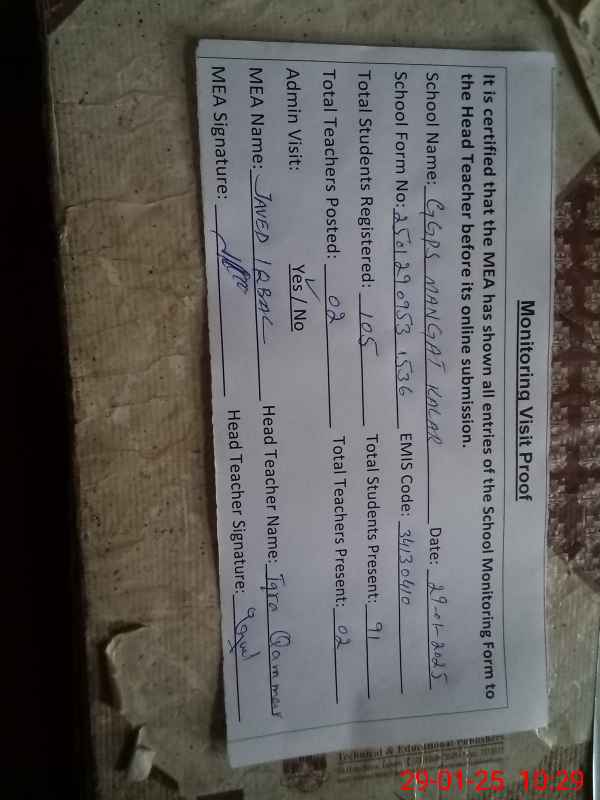 Monitoring Visit Proof
It is certified that the MEA has shown all entries of the School Monitoring Form to
the Head Teacher before its online submission.
School Name: GGPS MANGAT KALAR Date: 29-01-2025
School Form No: 2501290953 1536 EMIS Code: 34130410
Total Students Registered: 105 Total Students Present: 91
Total Teachers Posted: 02 Total Teachers Present: 02
Admin Visit: Yes / No
MEA Name: JAVED IQBAL Head Teacher Name: Iqra Qammar
MEA Signature: Head Teacher Signature:
Technical & Educational Publishers
29-01-25 10:29